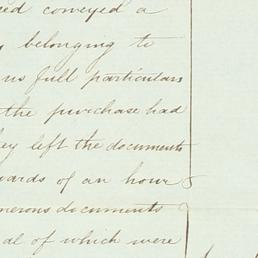 sed conveyed a
belonging to
us full particulars
the purchase had
ey left the documents
wards of an hour
merous documents
al of which were